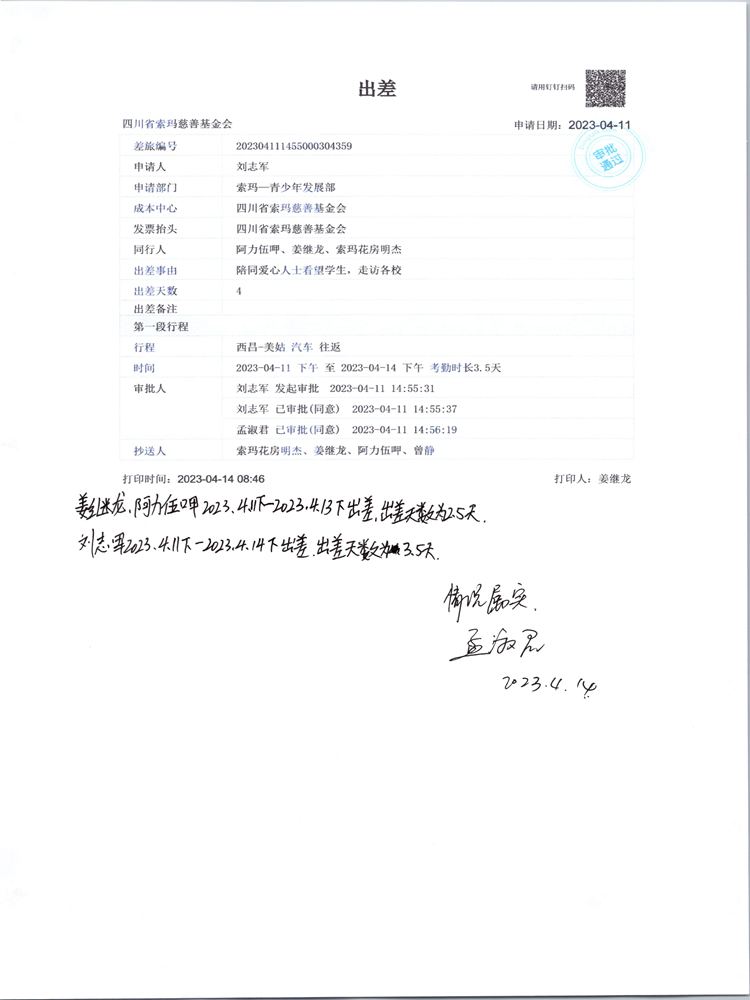 出差
请用钉钉扫码
四川省索玛慈善基金会 申请日期：2023-04-11
审批通过
差旅编号 202304111455000304359
申请人 刘志军
申请部门 索玛—青少年发展部
成本中心 四川省索玛慈善基金会
发票抬头 四川省索玛慈善基金会
同行人 阿力伍呷、姜继龙、索玛花房明杰
出差事由 陪同爱心人士看望学生，走访各校
出差天数 4
出差备注
第一段行程
行程 西昌-美姑 汽车 往返
时间 2023-04-11 下午 至 2023-04-14 下午 考勤时长3.5天
审批人 刘志军 发起审批 2023-04-11 14:55:31
刘志军 已审批(同意) 2023-04-11 14:55:37
孟淑君 已审批(同意) 2023-04-11 14:56:19
抄送人 索玛花房明杰、姜继龙、阿力伍呷、曾静
打印时间：2023-04-14 08:46 打印人：姜继龙
姜继龙、阿力伍呷2023.4.11下-2023.4.13下出差，出差天数为2.5天.
刘志军2023.4.11下-2023.4.14下出差.出差天数为3.5天.
情况属实.
孟淑君
2023.4.14